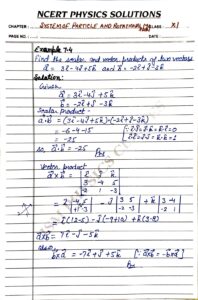 NCERT PHYSICS SOLUTIONS
CHAPTER: SYSTEM OF PARTICLE AND ROTATIONAL CLASS XI
PAGE NO.: DATE:
Example 7.4
Find the scalar and vector products of two vectors
a = 3î - 4ĵ + 5k̂ and b = -2î + ĵ - 3k̂
Solution:
Given
a = 3î - 4ĵ + 5k̂
b = -2î + ĵ - 3k̂
Scalar product -
a·b = (3î - 4ĵ + 5k̂)·(-2î + ĵ - 3k̂)
= -6 - 4 - 15
= -25
so, a·b = -25
Vector product
a×b = | î ĵ k̂
3 -4 5
-2 1 -3 |
= î | -4 5 | - ĵ | 3 5 | + k̂ | 3 -4 |
1 -3 -2 -3 -2 1
= î (12-5) - ĵ (-9+10) + k̂ (3-8)
a×b = 7î - ĵ - 5k̂
also
b×a = -7î + ĵ + 5k̂ [∵ a×b = -b×a]